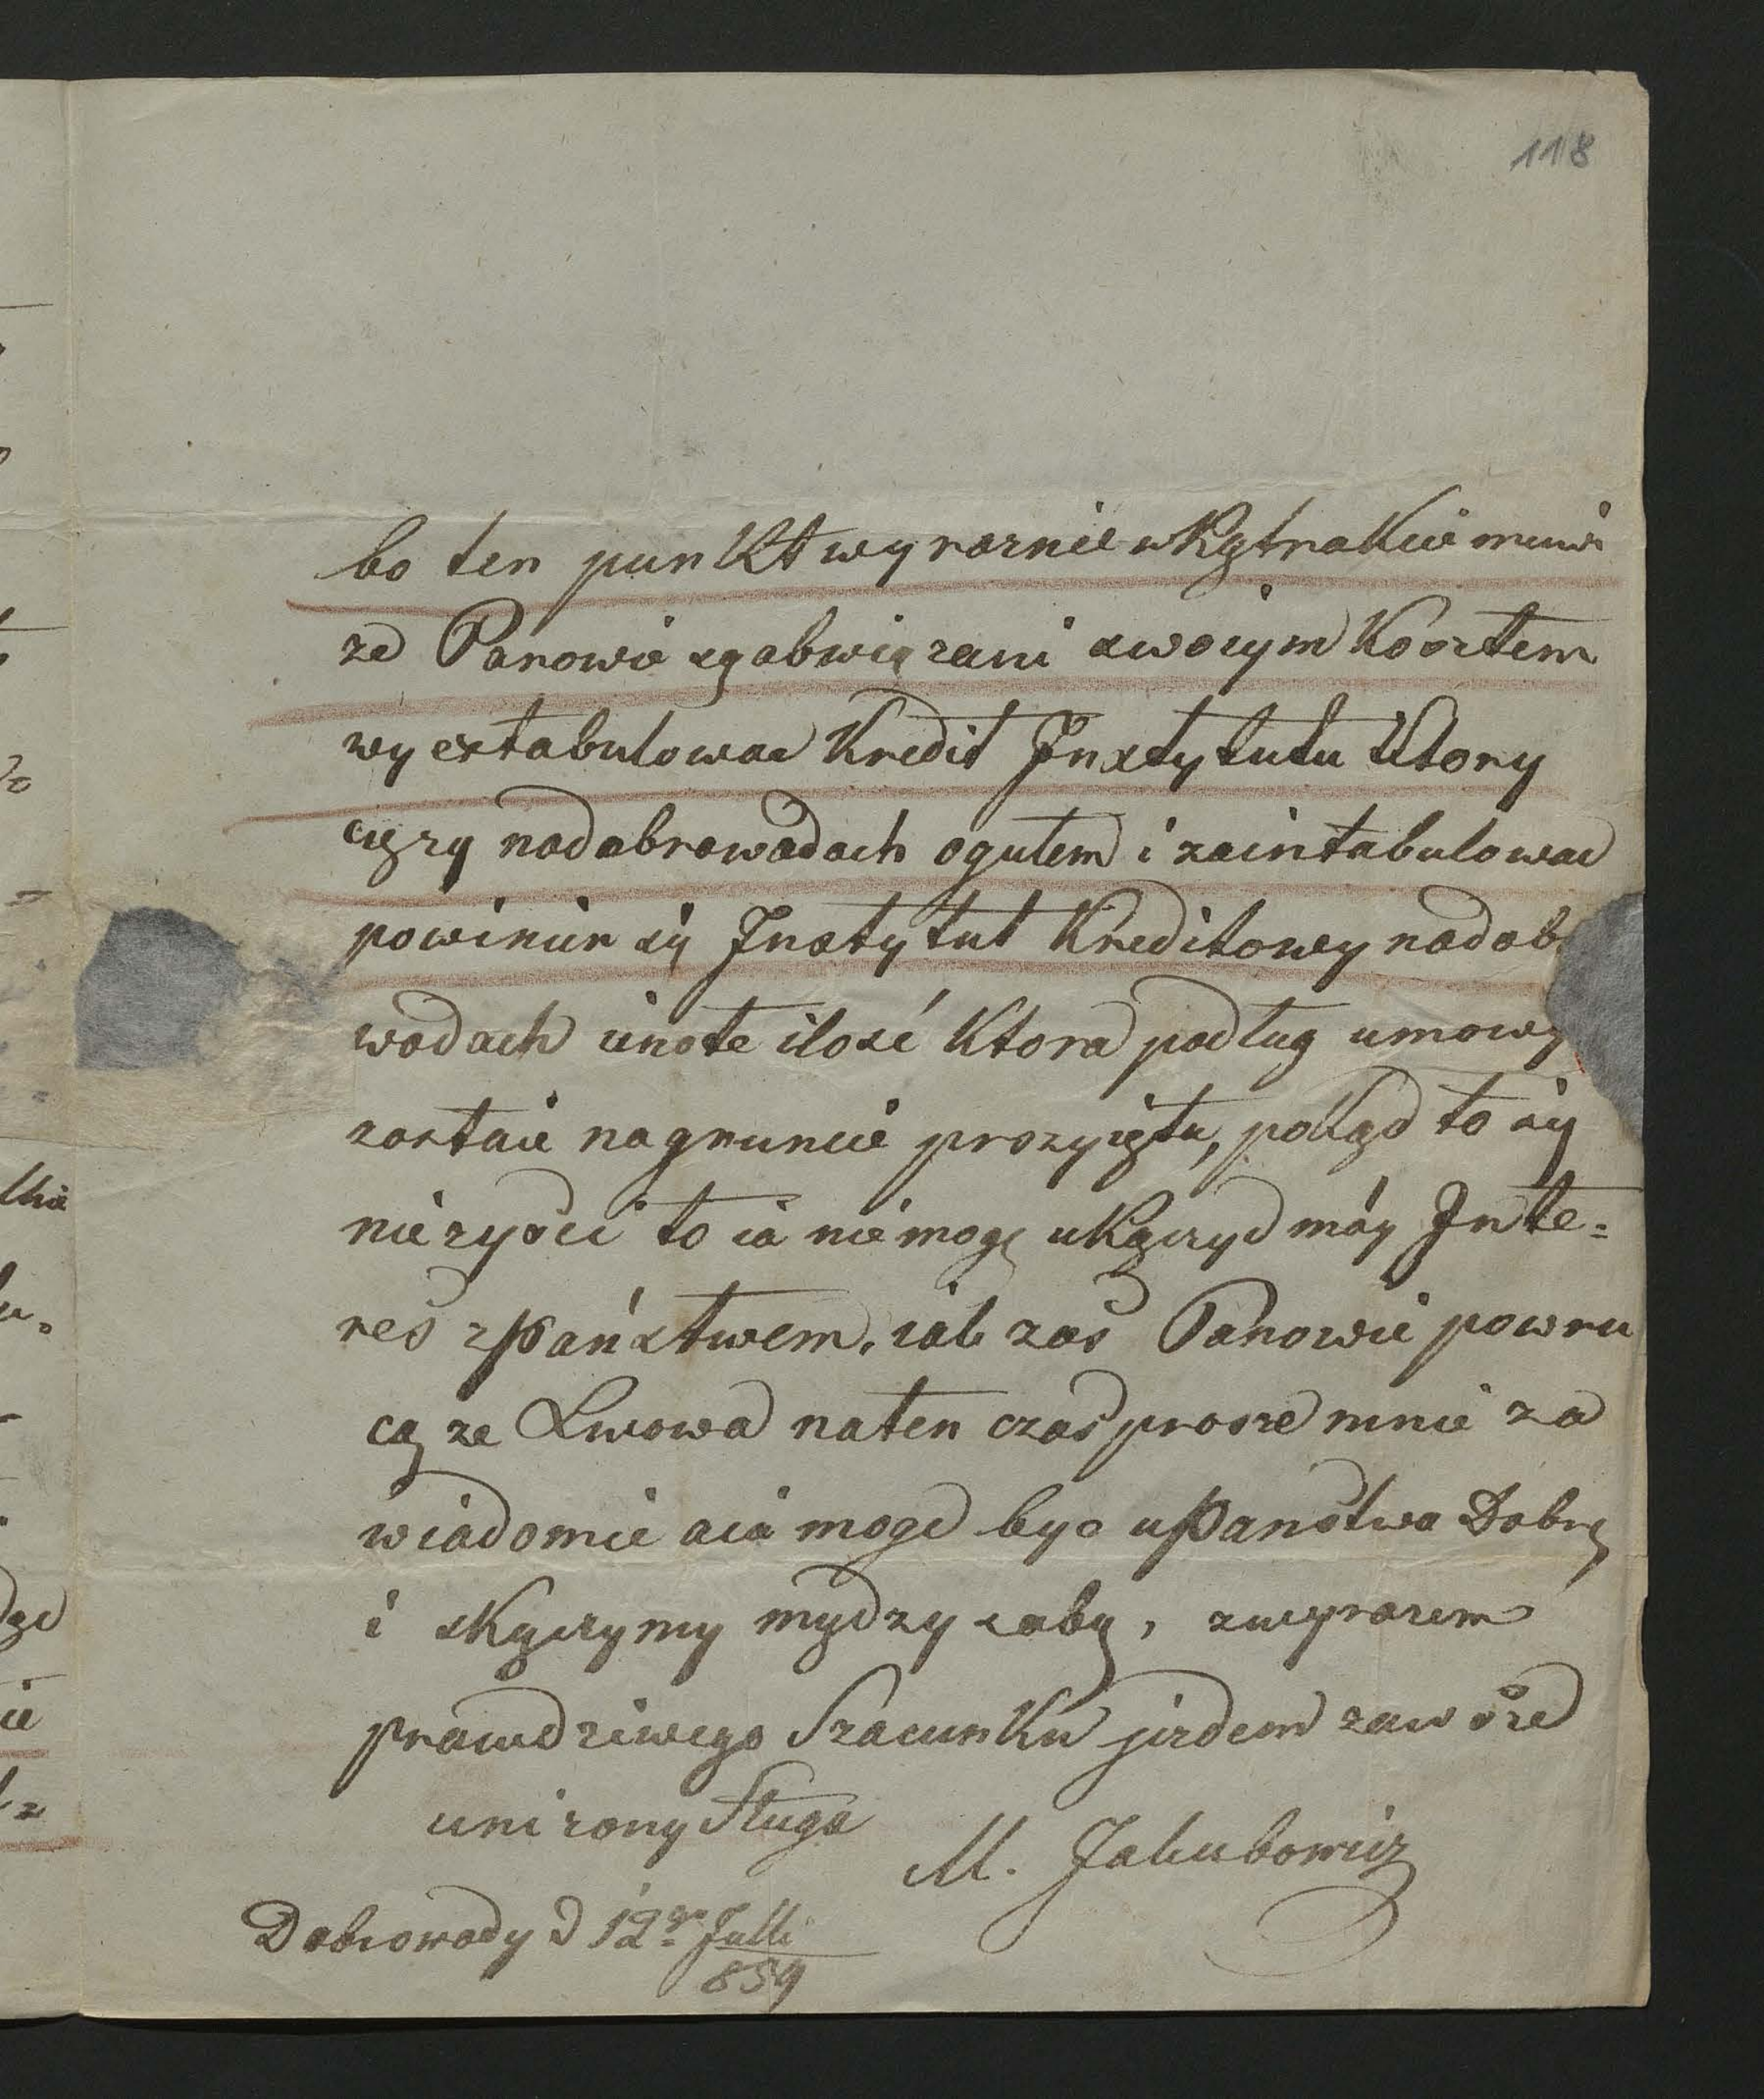 118
bo ten punkt wyraznie w Kątrakcie muwi
ze Panowie są abwiązani swoiym Kosztem
wyextabulowac Kredit Instytutu Ktory
cięzy nadabrowodach ogułem i zaintabulowac
powinien się Instytut Kreditowy nadob
wodach ino te ilosć Ktora podług umowy
zostaie nagruncie przyięta, pokąd to się
nie zysci to ia nie mogę ukączyc móy Inte=
res z Państwem, iak zas Panowie powru
cą ze Lwowa naten czas prosze mnie za
wiadomic a ia moge byc u Panstwa Dobrę
i skączymy mydzy sobą, zwyrazem
prawdziwego Szacunku jezdem zawsze
unizony Sługa
M. Jakubowicz
Dobrowody d 12go Julli
859